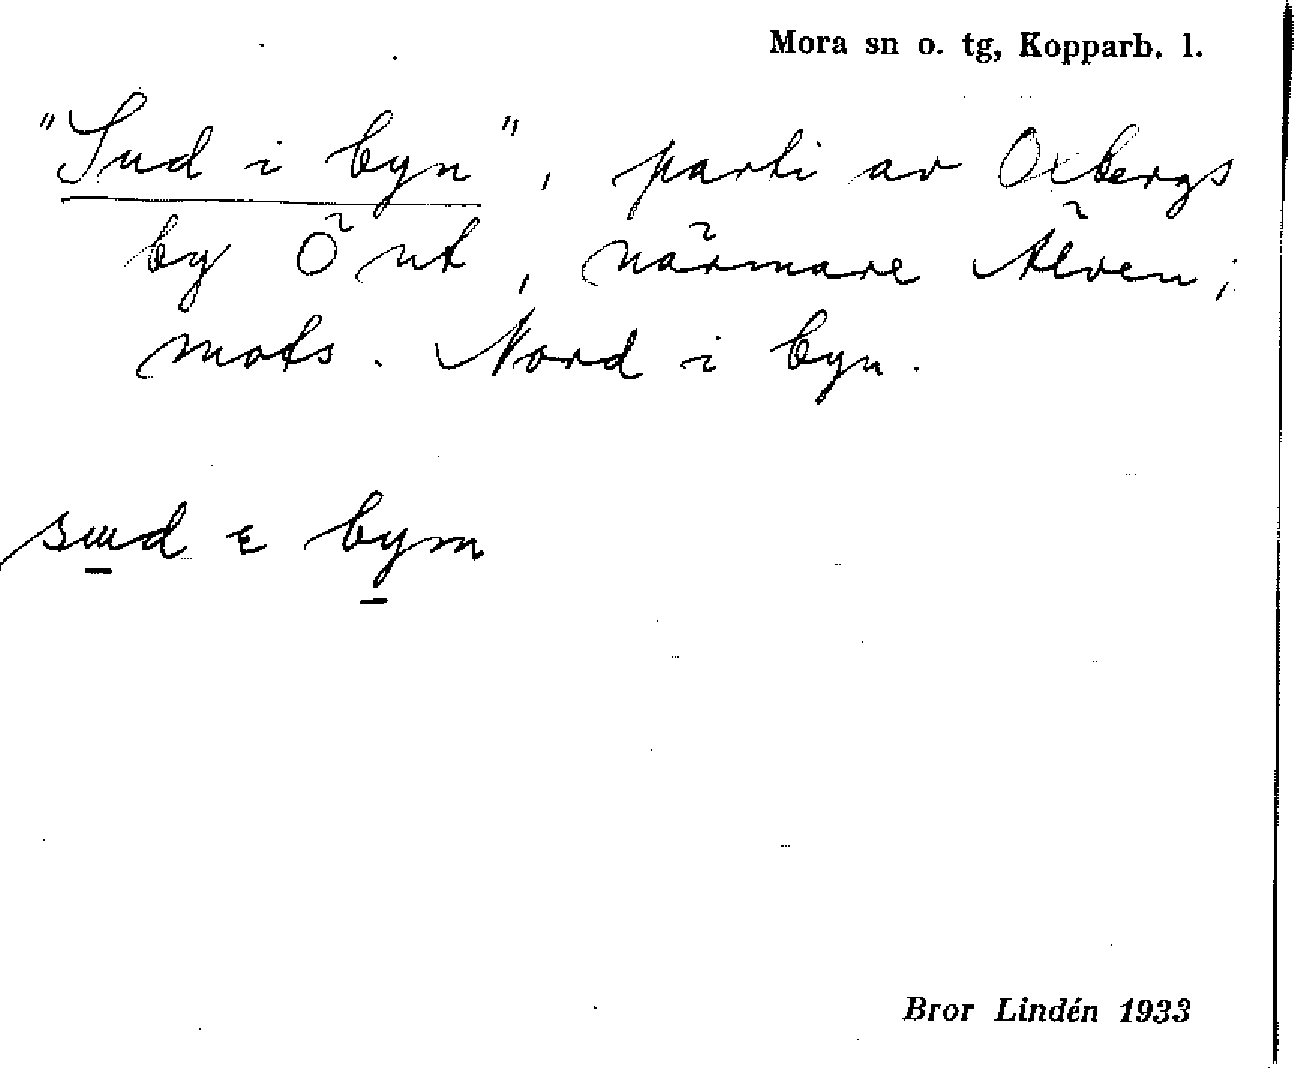 Mora sn o. tg, Kopparb. l.
"Sud i byn", parti av Oxbergs
by Önt, närmare Älven;
mots. Nord i byn.
sɯd ε bym
Bror Lindén 1933